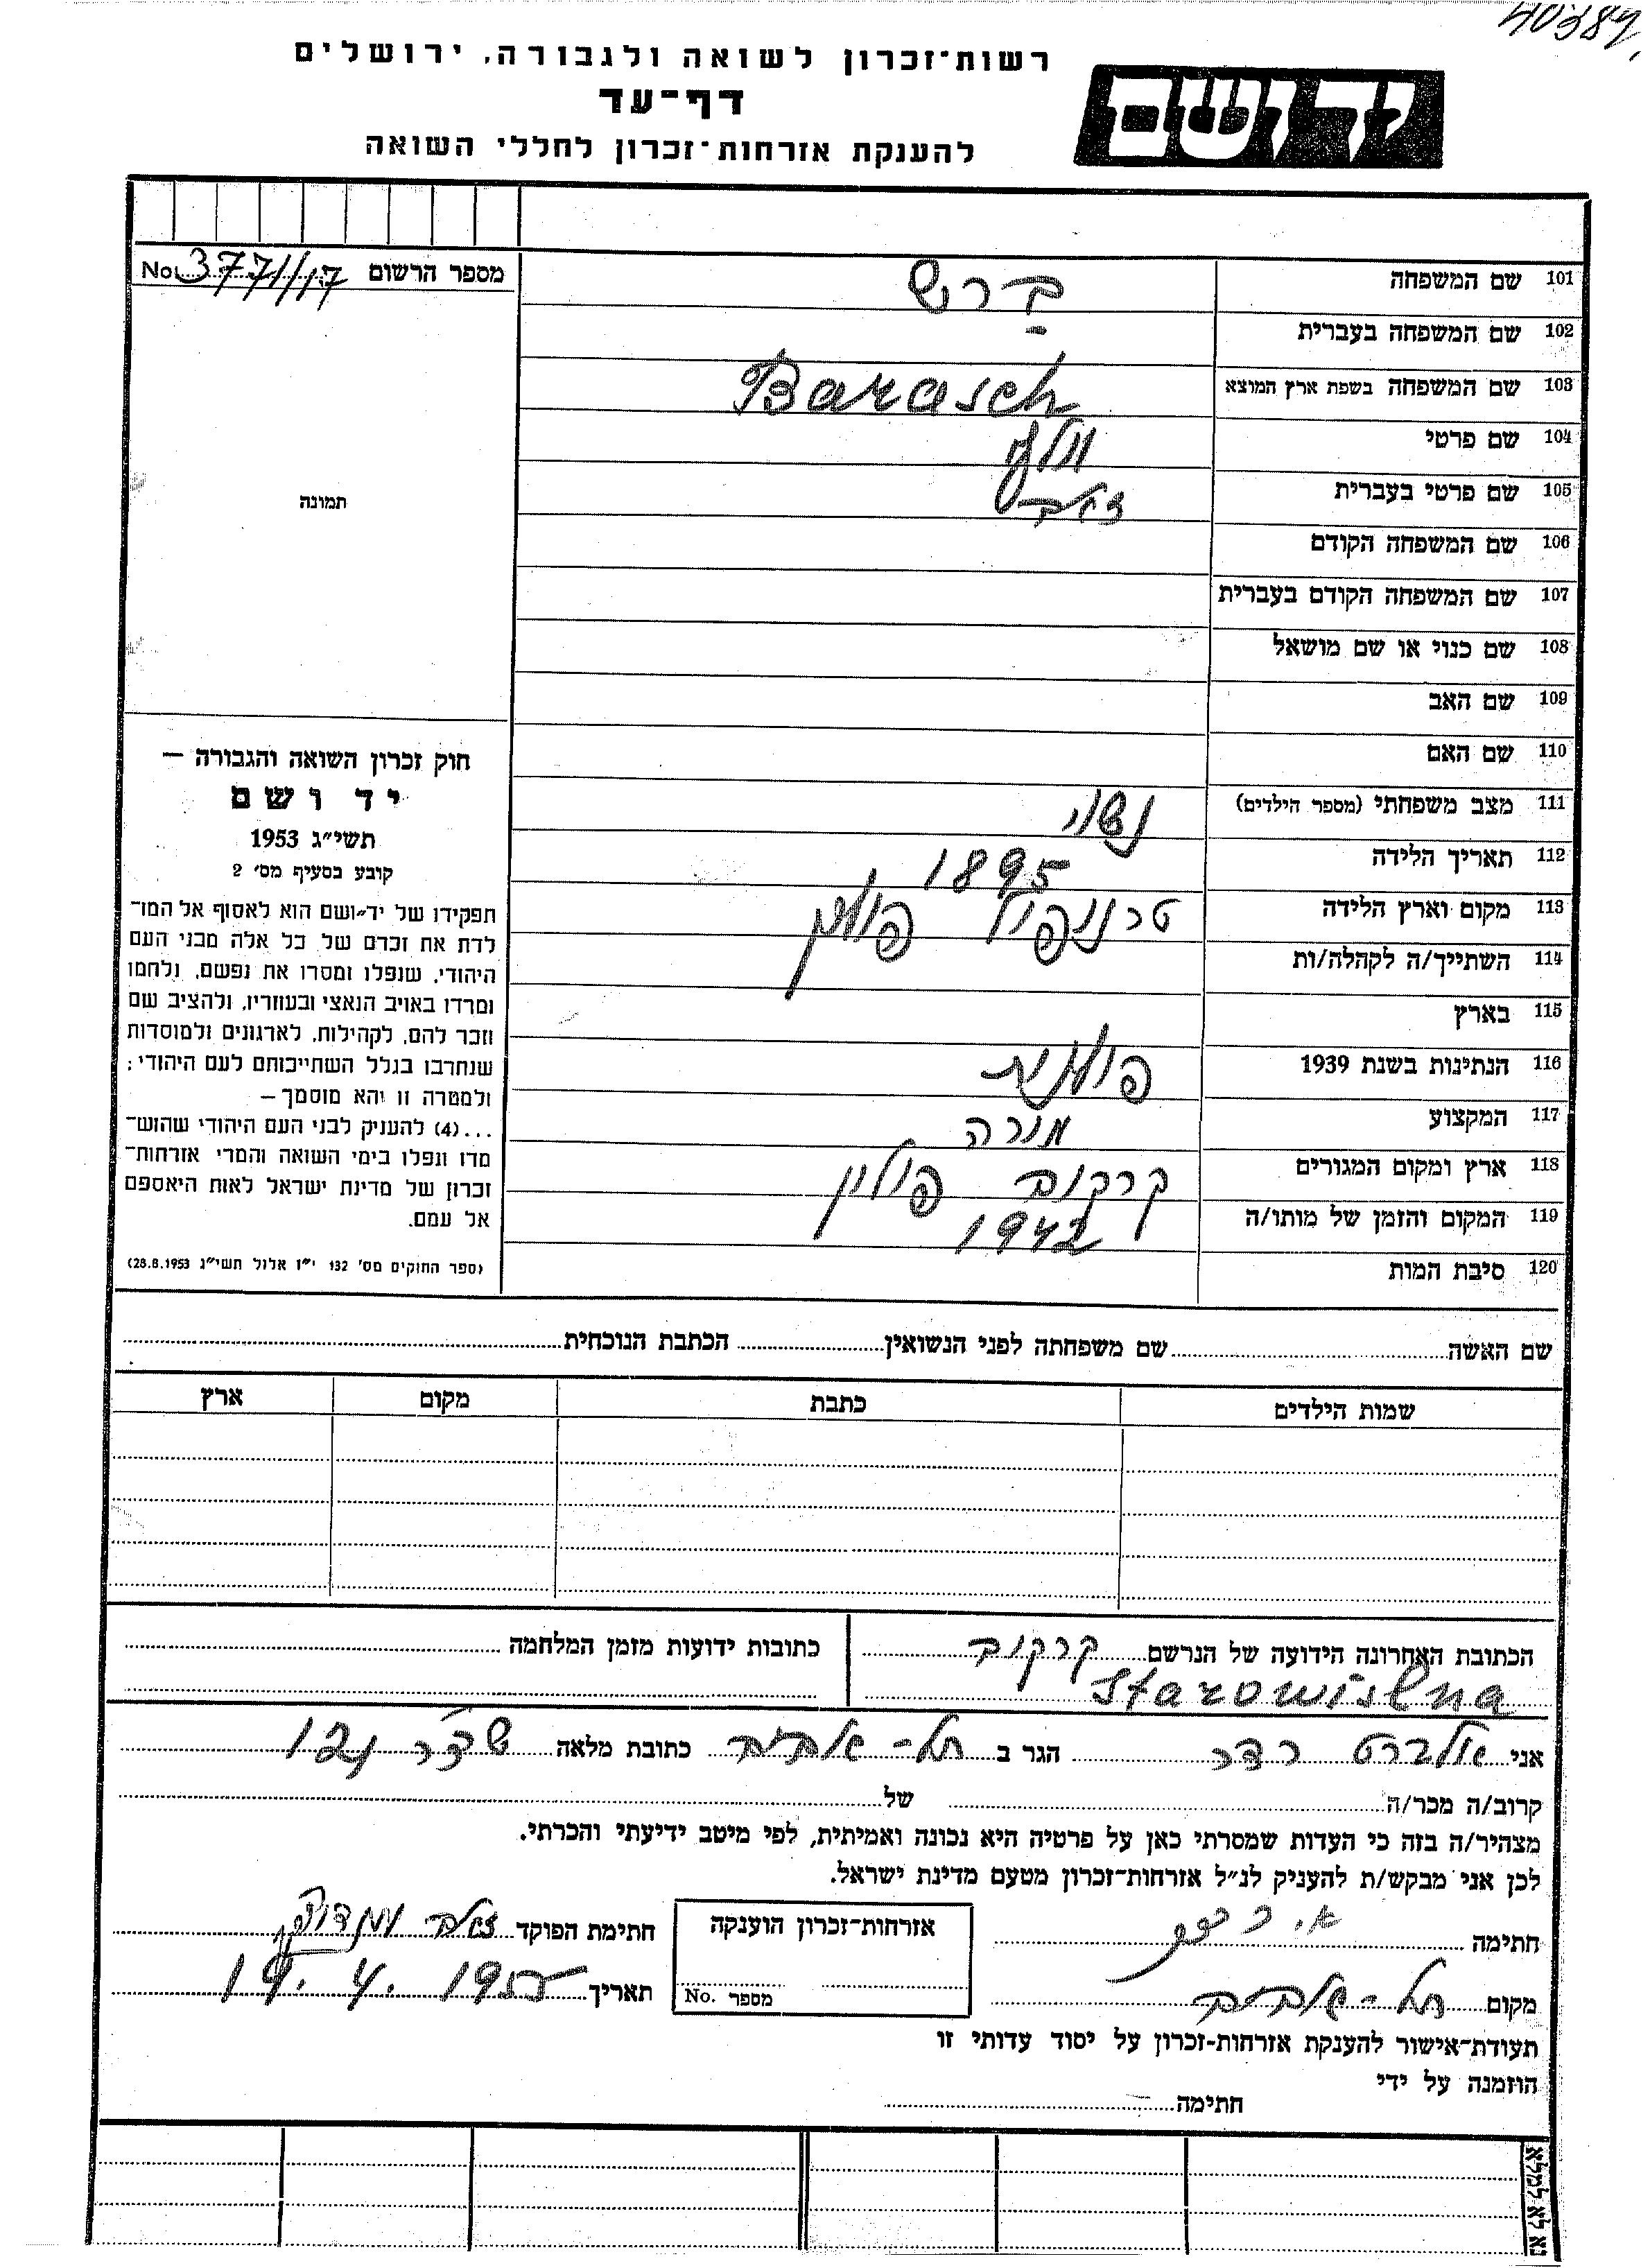 40384
רשות־זכרון לשואה ולגבורה, ירושלים
דף־עד
להענקת אזרחות־זכרון לחללי השואה
יד ושם
מספר הרשום No. 3771/17
101 שם המשפחה ברש
102 שם המשפחה בעברית
103 שם המשפחה בשפת ארץ המוצא Barasch
104 שם פרטי וולף
105 שם פרטי בעברית זאב
106 שם המשפחה הקודם
107 שם המשפחה הקודם בעברית
108 שם כנוי או שם מושאל
109 שם האב
110 שם האם
111 מצב משפחתי (מספר הילדים) נשוי
112 תאריך הלידה 1895
113 מקום וארץ הלידה טרנופול פולין
114 השתייך/ה לקהלה/ות
115 בארץ
116 הנתינות בשנת 1939 פולנית
117 המקצוע מורה
118 ארץ ומקום המגורים קרקוב פולין
119 המקום והזמן של מותו/ה 1942
120 סיבת המות
תמונה
חוק זכרון השואה והגבורה —
יד ושם
תשי״ג 1953
קובע בסעיף מס׳ 2
תפקידו של יד־ושם הוא לאסוף אל המו־
לדת את זכרם של כל אלה מבני העם
היהודי, שנפלו ומסרו את נפשם, נלחמו
ומרדו באויב הנאצי ובעוזריו, ולהציב שם
וזכר להם, לקהילות, לארגונים ולמוסדות
שנחרבו בגלל השתייכותם לעם היהודי;
ולמטרה זו יהא מוסמך —
...(4) להעניק לבני העם היהודי שהוש־
מדו ונפלו בימי השואה והמרי אזרחות־
זכרון של מדינת ישראל לאות היאספם
אל עמם.
(ספר החוקים מס׳ 132 י״ז אלול תשי״ג 28.8.1953)
שם האשה שם משפחתה לפני הנשואין הכתבת הנוכחית
שמות הילדים כתבת מקום ארץ
הכתובת האחרונה הידועה של הנרשם קרקוב כתובות ידועות מזמן המלחמה
Starowislna
אני אלברט רדר הגר ב תל-אביב כתובת מלאה 121
קרוב/ה מכר/ה של
מצהיר/ה בזה כי העדות שמסרתי כאן על פרטיה היא נכונה ואמיתית, לפי מיטב ידיעתי והכרתי.
לכן אני מבקש/ת להעניק לנ״ל אזרחות־זכרון מטעם מדינת ישראל.
חתימה אזרחות־זכרון הוענקה חתימת הפוקד זאב
מקום תל-אביב מספר No. תאריך 19.4.1955
תעודת־אישור להענקת אזרחות-זכרון על יסוד עדותי זו
הוזמנה על ידי
חתימה
נא לא למלא